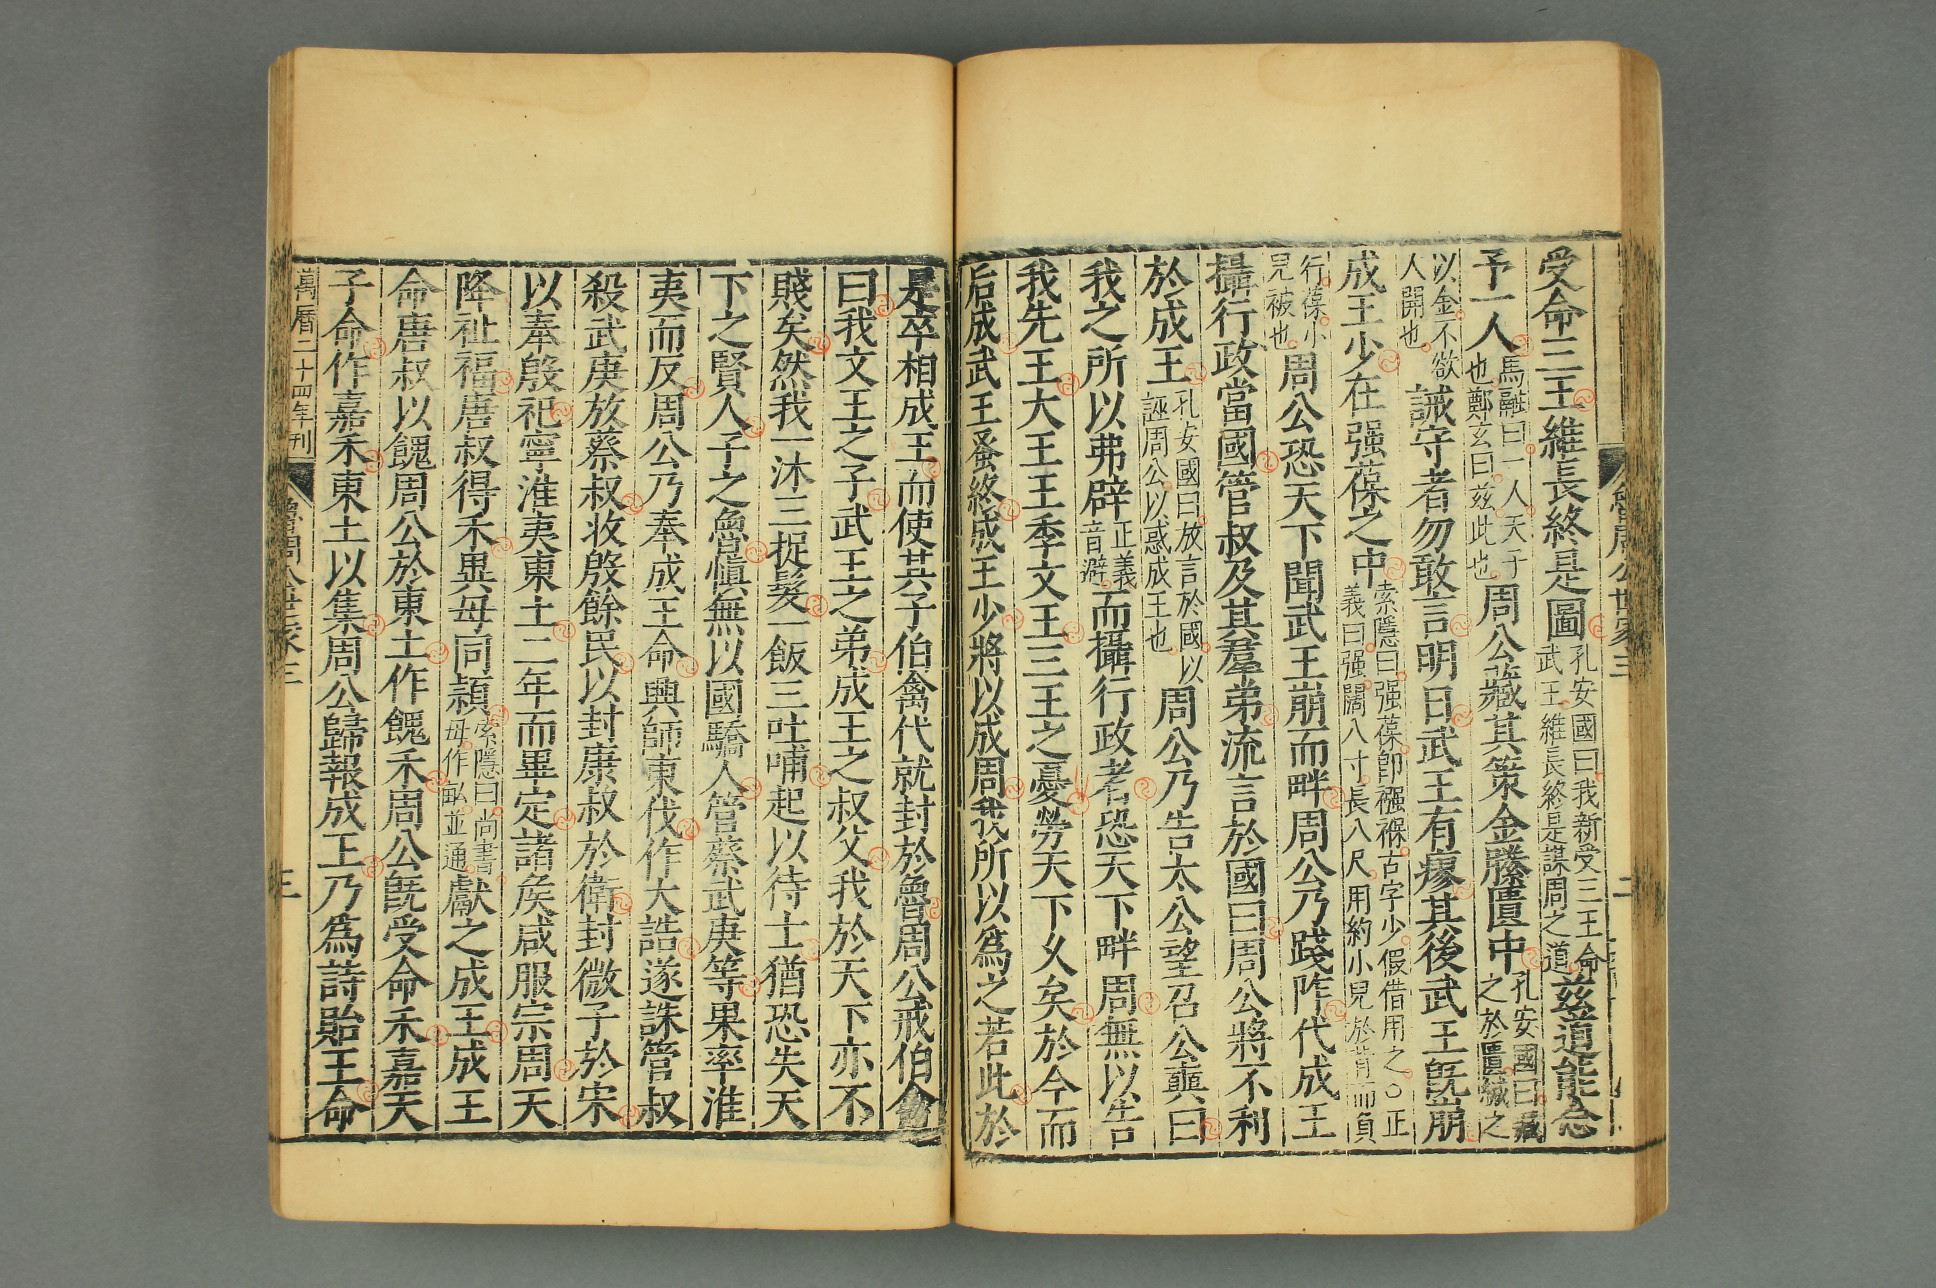 魯周公世家三
二
受命三王維長終是圖孔安國曰我新受三王命武王維長終是謀周之道茲道能念
予一人馬融曰一人天子也鄭玄曰茲此也周公藏其策金縢匱中孔安國曰藏之於匱緘之
以金不欲人開也誡守者勿敢言明日武王有瘳其後武王旣崩
成王少在强葆之中索隱曰强葆卽襁褓古字少假借用之○正義曰强闊八寸長八尺用約小兒於背而負
行葆小兒被也周公恐天下聞武王崩而畔周公乃踐阼代成王
攝行政當國管叔及其羣弟流言於國曰周公將不利
於成王孔安國曰放言於國以誣周公以惑成王也周公乃告太公望召公奭曰
我之所以弗辟正義音避而攝行政者恐天下畔周無以告
我先王大王王季文王三王之憂勞天下乂矣於今而
后成武王蚤終成王少將以成周我所以爲之若此於
是卒相成王而使其子伯禽代就封於魯周公戒伯禽
曰我文王之子武王之弟成王之叔父我於天下亦不
賤矣然我一沐三捉髮一飯三吐哺起以待士猶恐失天
下之賢人子之魯愼無以國驕人管蔡武庚等果率淮
夷而反周公乃奉成王命興師東伐作大誥遂誅管叔
殺武庚放蔡叔收殷餘民以封康叔於衛封微子於宋
以奉殷祀寧淮夷東土二年而畢定諸侯咸服宗周天
降祉福唐叔得禾異母同穎索隱曰尚書母作畝並通獻之成王成王
命唐叔以餽周公於東土作餽禾周公旣受命禾嘉天
子命作嘉禾東土以集周公歸報成王乃爲詩貽王命
萬曆二十四年刊
魯周公世家三
三